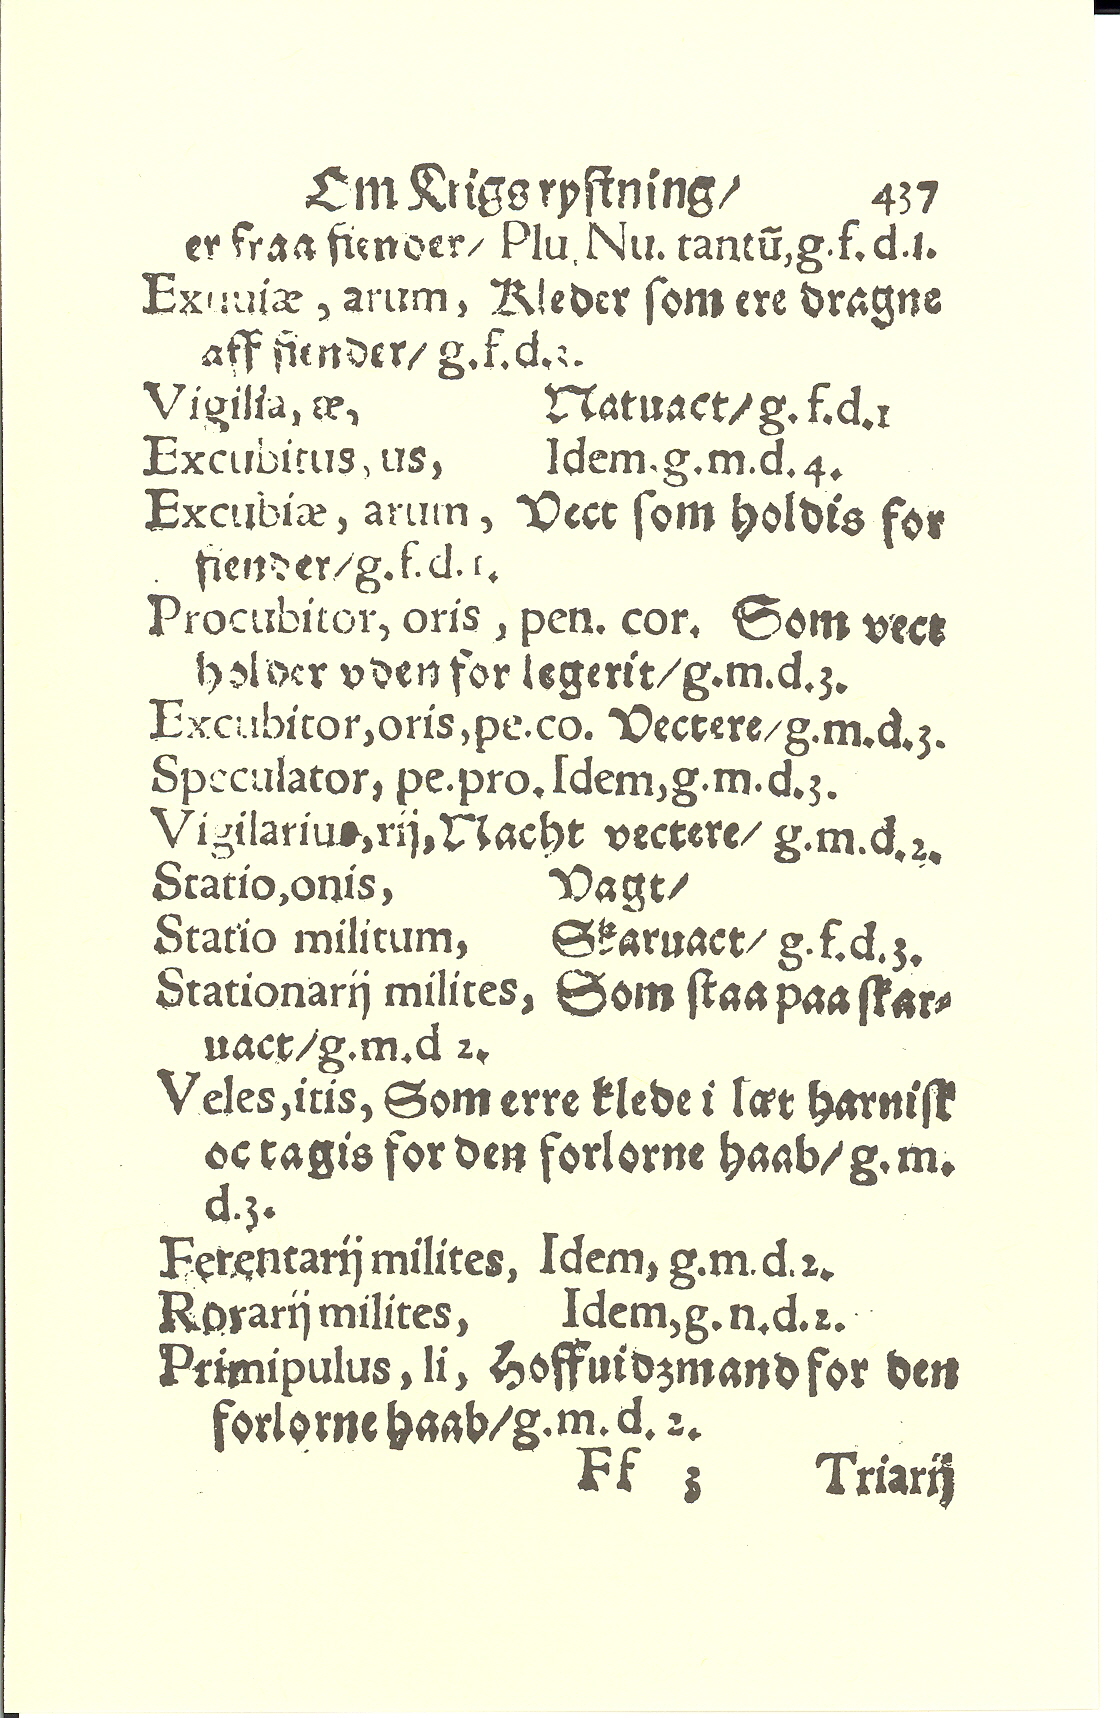 Om Krigsrystning/ 437
er fraa fiender/ Plu. Nu. tantũ, g. f. d. 1.
Exuuiæ, arum, Kleder som ere dragne
aff fiender/ g. f. d. 1.
Vigilia, æ, Natuact/ g. f. d. 1
Excubitus, us, Idem. g. m. d. 4.
Excubiæ, arum, Vect som holdis for
fiender/ g. f. d. 1.
Procubitor, oris, pen. cor. Som vect
holder vden for legerit/ g. m. d. 3.
Excubitor, oris, pe. co. Vectere/ g. m. d. 3.
Speculator, pe. pro. Idem, g. m. d. 3.
Vigilarius, rij, Nacht vectere/ g. m. d. 2.
Statio, onis, Vagt/
Statio militum, Skaruact/ g. f. d. 3.
Stationarij milites, Som staa paa skar-
uact/ g. m. d 2.
Veles, itis, Som erre klede i læt harnisk
oc tagis for den forlorne haab/ g. m.
d. 3.
Ferentarij milites, Idem, g. m. d. 2.
Rorarij milites, Idem, g. n. d. 2.
Primipulus, li, Hoffuidzmand for den
forlorne haab/ g. m. d. 2.
Ff 3 Triarij